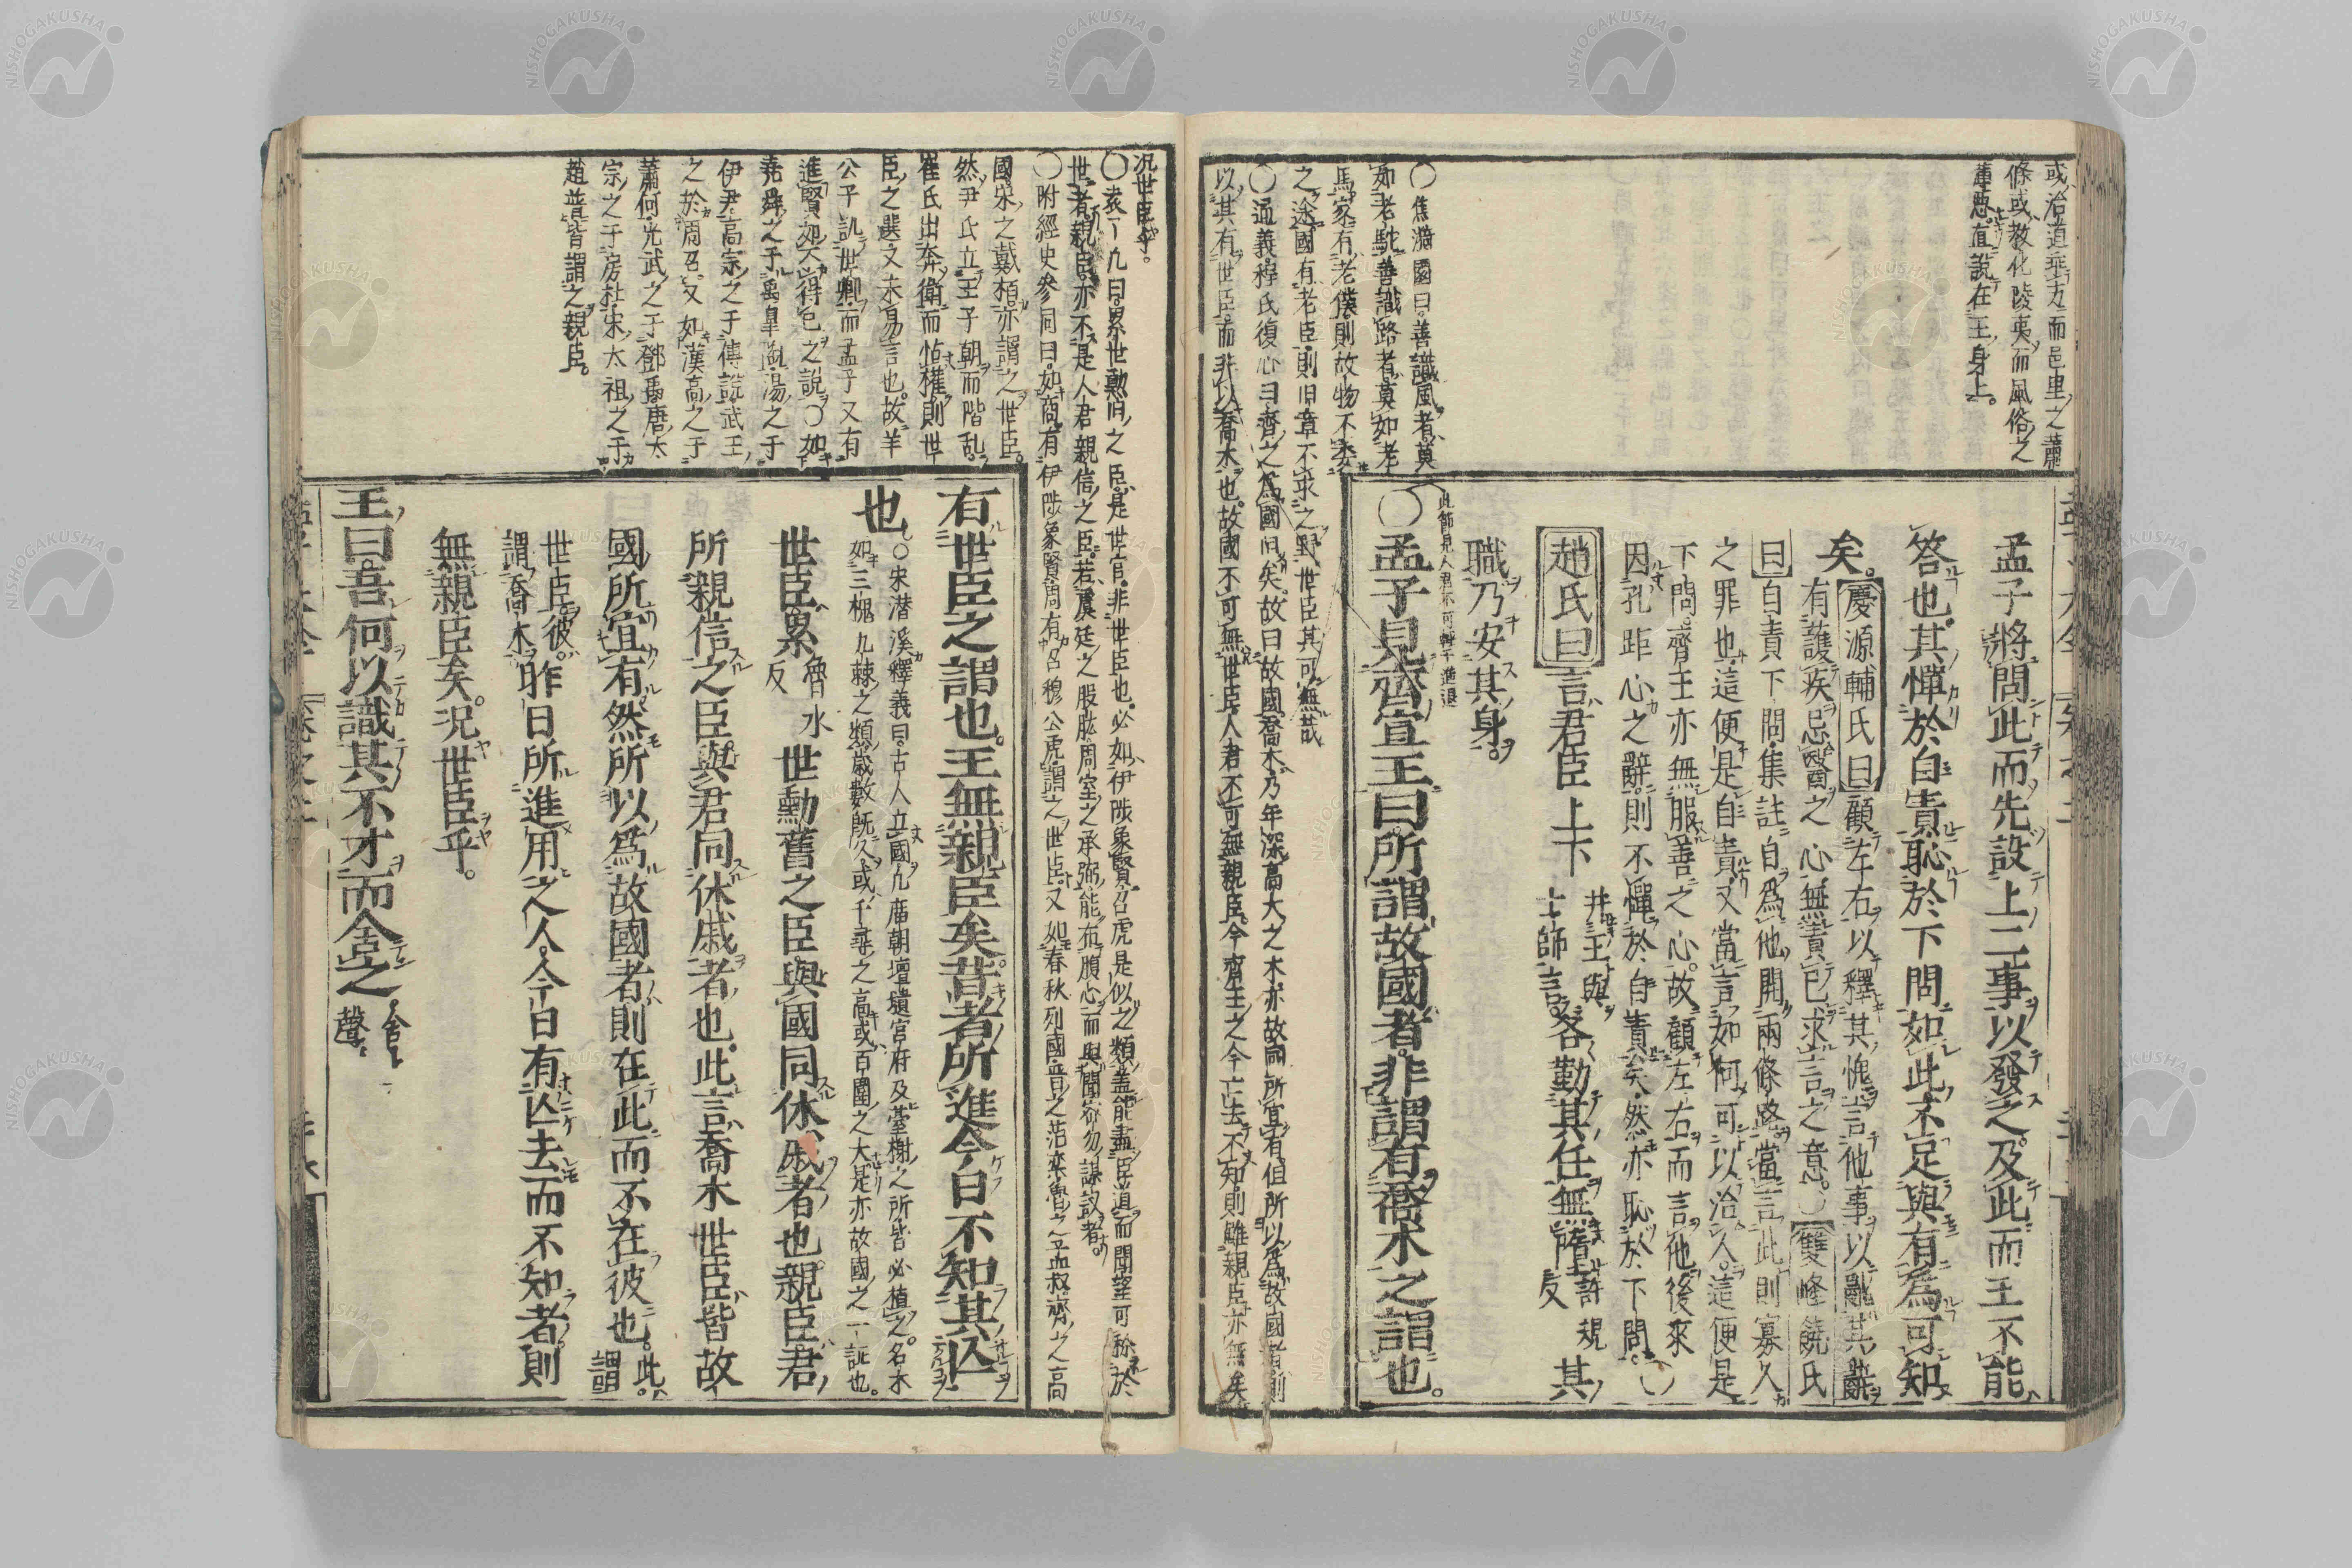 或治道乖方而邑里之蕭
條或教化陵夷而風俗之
薄惡直説在王身上。
孟子將問此而先設上二事以發之及此而王不能
答也其憚於自責恥於下問如此不足與有爲可知
矣。慶源輔氏曰顧左右以釋其愧言他事以亂其辭
有護疾忌醫之心無責已求言之意。○雙峰饒氏
曰自責下問集註自爲他開兩條路當言此則寡人
之罪也這便是自責又當言如何可以治人這便是
下問齊王亦無服善之心故顧左右而言他後來
因孔距心之辭則不憚於自責矣然亦恥於下問。○
趙氏曰言君臣上下
幷王與
士師言。
各勤其任無墮
許規
反
其
職乃安其身。
此節見人君不可輕于進退
○孟子見齊宣王曰所謂故國者非謂有喬木之謂也。
○焦漪園曰善識風者莫
如老駝善識路者莫如老
馬家有老僕則故物不委
之途國有老臣則旧章不求之野世臣其可無哉
○通義程氏復心曰齊之爲國旧矣故曰故國喬木乃年深高大之木亦故國所宜有但所以爲故國者則
以其有世臣而非以喬木也。故國不可無世臣人君不可無親臣今齊王之今亡去不知則雖親臣亦無矣
况世臣乎。
○袁了凡曰累世勲旧之臣是世官非世臣也必如伊陟象賢召虎是似之類盖能盡臣道而聞望可称於
世者親臣亦不是人君親信之臣若虞廷之股肱周室之承弼能布腹心而與聞
○附經史參同曰如商有伊陟象賢周有召穆公虎謂之世臣又如春秋列國晉之范欒魯之孟叔齊之高
國宋之戴桓亦謂之世臣。
然尹氏立王子朝而階乱
崔氏出奔衛而怙權則世
臣之選又未易言也故羊
公子訊世卿而孟子又有
進賢如不得已之説○如
堯舜之于禹皐陶湯之于
伊尹高宗之于傅説武王
之於周召又如漢高之于
蕭何光武之于鄧禹唐太
宗之于房杜宋太祖之于
趙普皆謂之親臣。
有世臣之謂也王無親臣矣昔者所進今日不知其亾
也
○宋潜溪釋義曰古人立國凡廟朝壇壝官府及薹榭之所皆必植之名木
如三槐九棘之類歳數既久或千尋之高或百圍之大是亦故國之一証也。
世臣累
魯水
反
世勳舊之臣與國同休戚者也親臣君
所親信之臣與君同休戚者也此言喬木世臣皆故
國所宜有然所以爲故國者則在此而不在彼也。
此謂
世臣彼
謂喬木
昨日所進用之人今日有亾去而不知者則
無親臣矣。况世臣乎。
王曰吾何以識其不才而舍之
舍上
聲